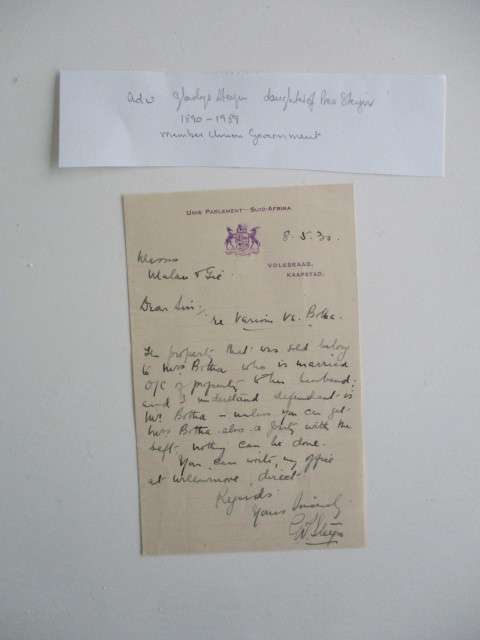 Adv Gladys Steyn daughter of Pres Steyn
1890 - 1989
member Union Government
UNIE PARLEMENT—SUID-AFRIKA
8.5.30.
VOLKSRAAD,
KAAPSTAD.
Messrs
Malan & Gie.
Dear Sirs:
re Va. Botha.
The property that was sold belong
to Mrs Botha who is married
O/C of property to her husband;
and I understand defendant is
Mr. Botha - unless you can get
Mrs Botha also a party with the
deft. nothing can be done.
You can write my office
at Willowmore direct.
Regards
Yours Sincerely
Steyn